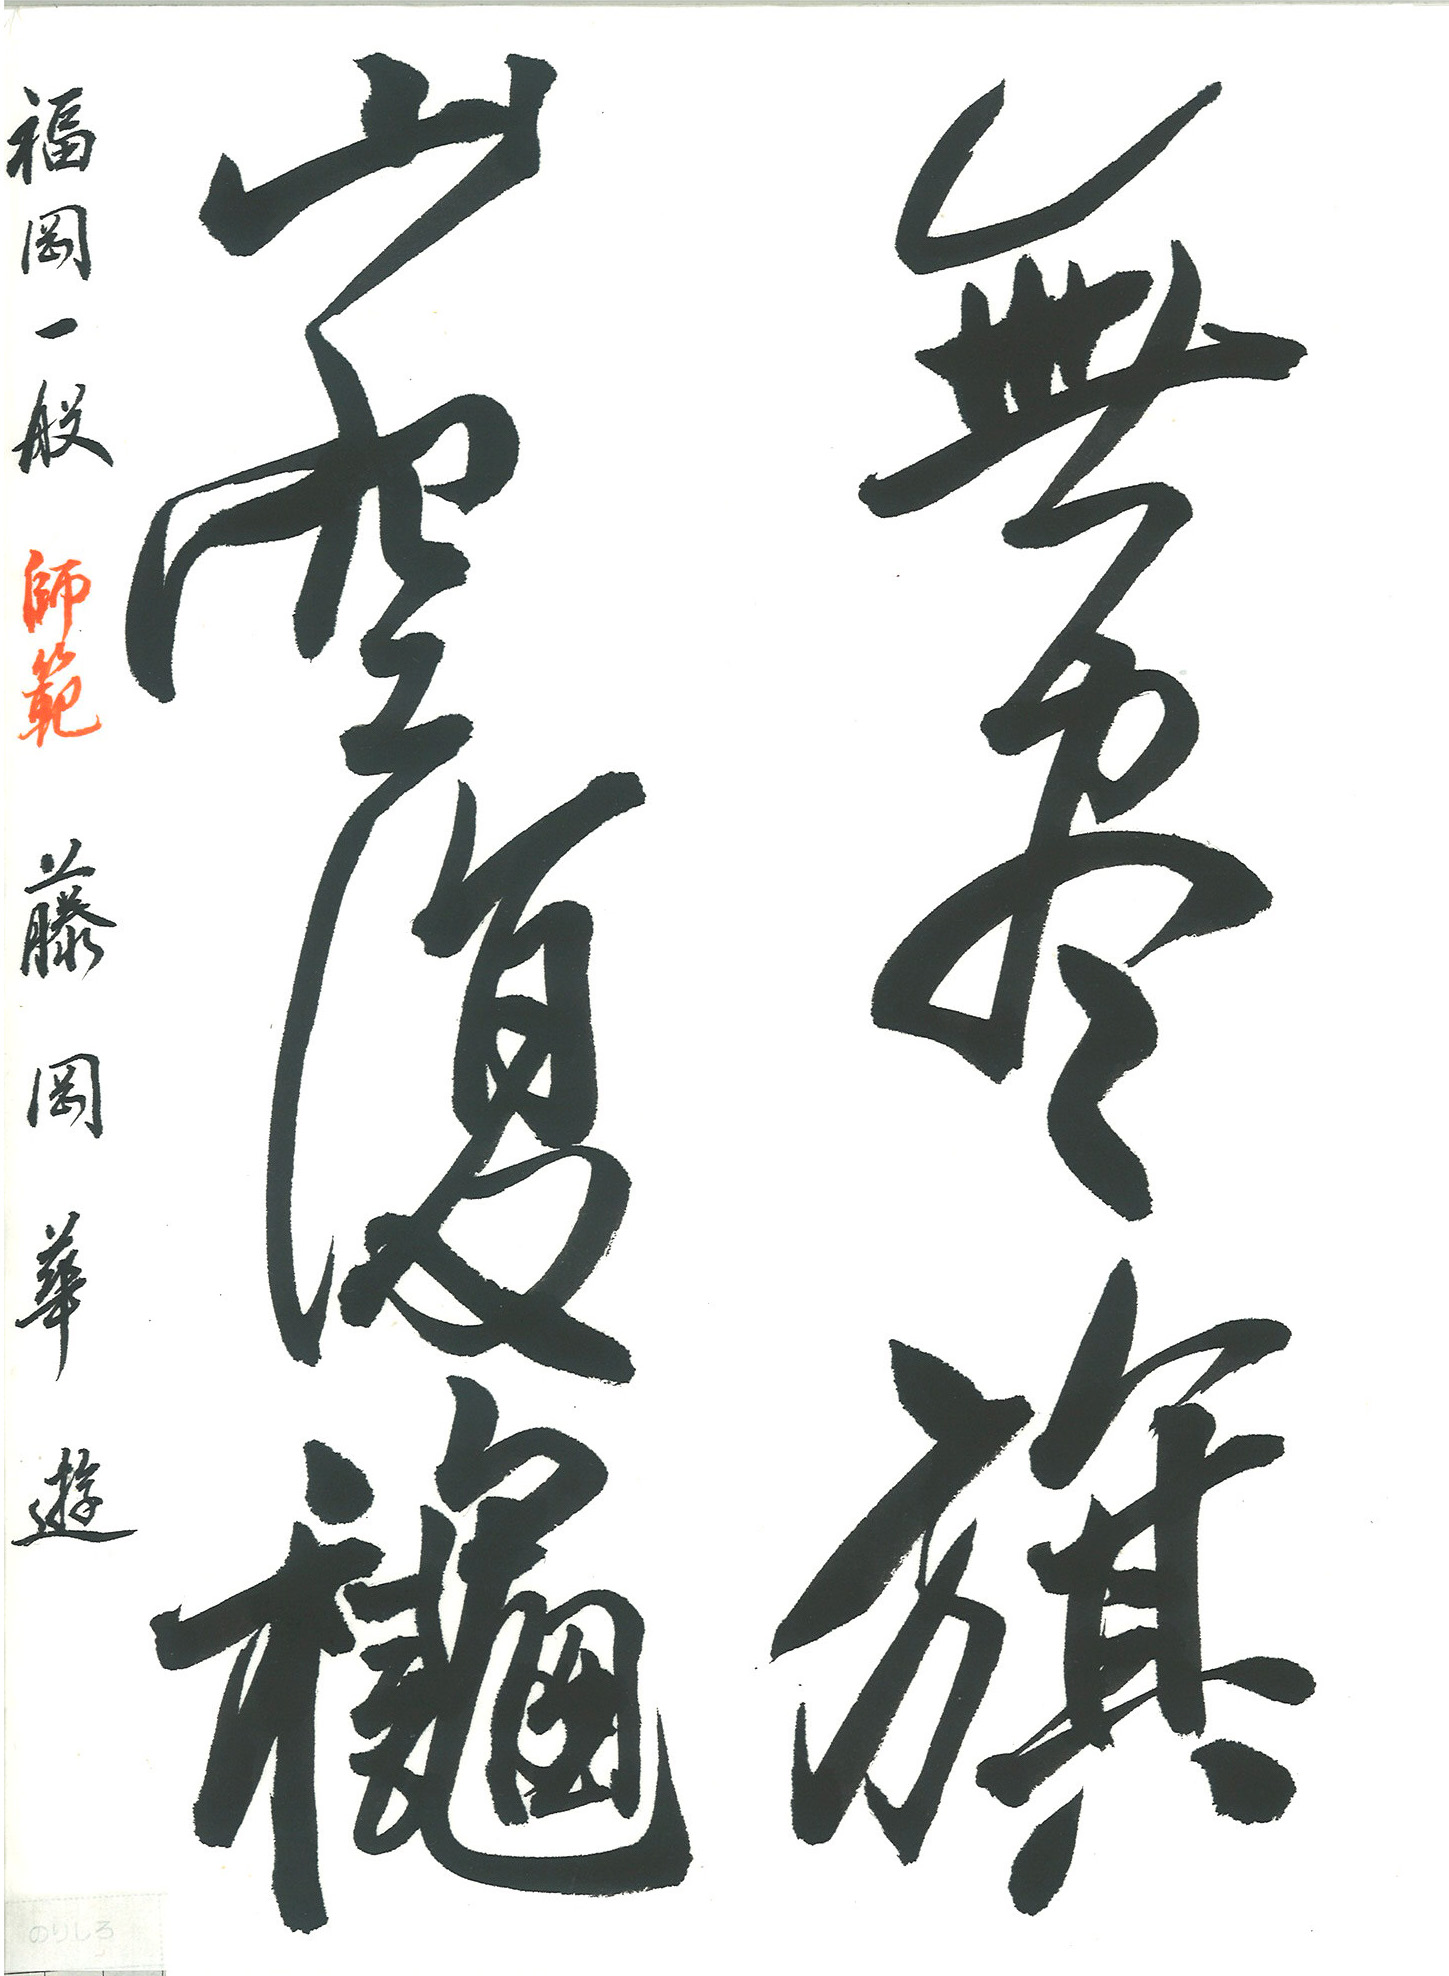 無尽旗
山雲復龝
福岡一般 師範 藤岡華遊
のりしろ